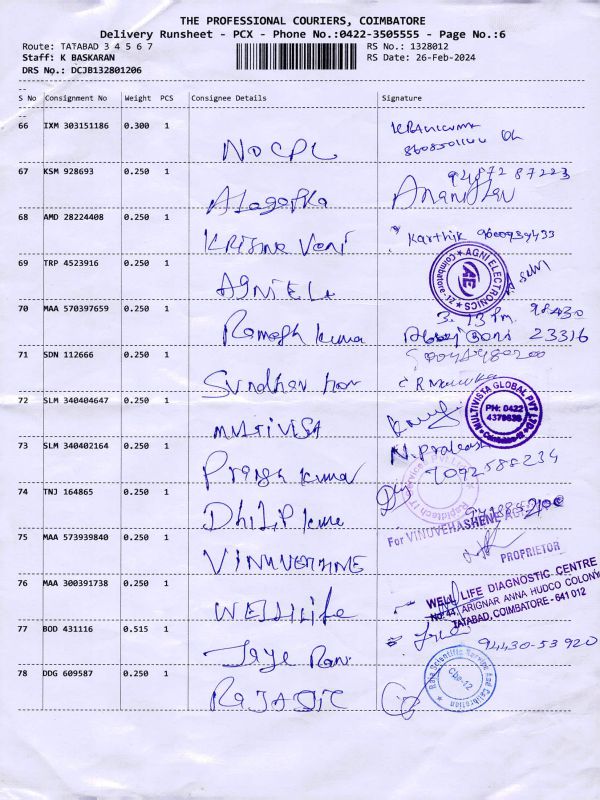 THE PROFESSIONAL COURIERS, COIMBATORE
Delivery Runsheet - PCX - Phone No.:0422-3505555 - Page No.:6
Route: TATABAD 3 4 5 6 7
RS No.: 1328012
Staff: K BASKARAN
RS Date: 26-Feb-2024
DRS No.: DCJB132801206
S No Consignment No Weight PCS Consignee Details Signature
66 IXM 303151186 0.300 1
NOCPL
67 KSM 928693 0.250 1
94872 87223
68 AMD 28224408 0.250 1
Krishna Veni
Karthik 9600939433
69 TRP 4523916 0.250 1
AGNI ELECTRONICS
AE
Coimbatore-12
70 MAA 570397659 0.250 1
Ramesh Kumar
3.13 Pm. 98430
23316
71 SDN 112666 0.250 1
72 SLM 340404647 0.250 1
MULTIVISTA
MULTIVISTA GLOBAL PVT LTD.
PH: 0422
4379636
73 SLM 340402164 0.250 1
N. Prakash
7092588234
74 TNJ 164865 0.250 1
DHILIP Kumar
75 MAA 573939840 0.250 1
For VINUVEHASHENE
PROPRIETOR
76 MAA 300391738 0.250 1
Well Life
WELL LIFE DIAGNOSTIC CENTRE
No 44, ARIGNAR ANNA HUDCO COLONY
TATABAD, COIMBATORE - 641 012
77 BOD 431116 0.515 1
Jaya Rani
94430-53920
78 DDG 609587 0.250 1
Raja Scientific Service and Calibration
Cbe-12